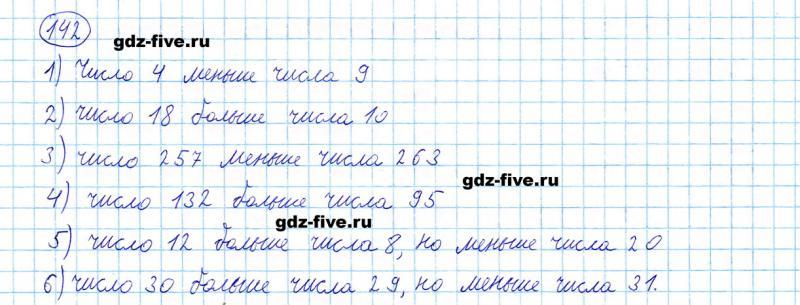 142
gdz-five.ru
1) Число 4 меньше числа 9
2) число 18 больше числа 10
3) число 257 меньше числа 263
gdz-five.ru
4) число 132 больше числа 95
gdz-five.ru
5) число 12 больше числа 8, но меньше числа 20
6) число 30 больше числа 29, но меньше числа 31.